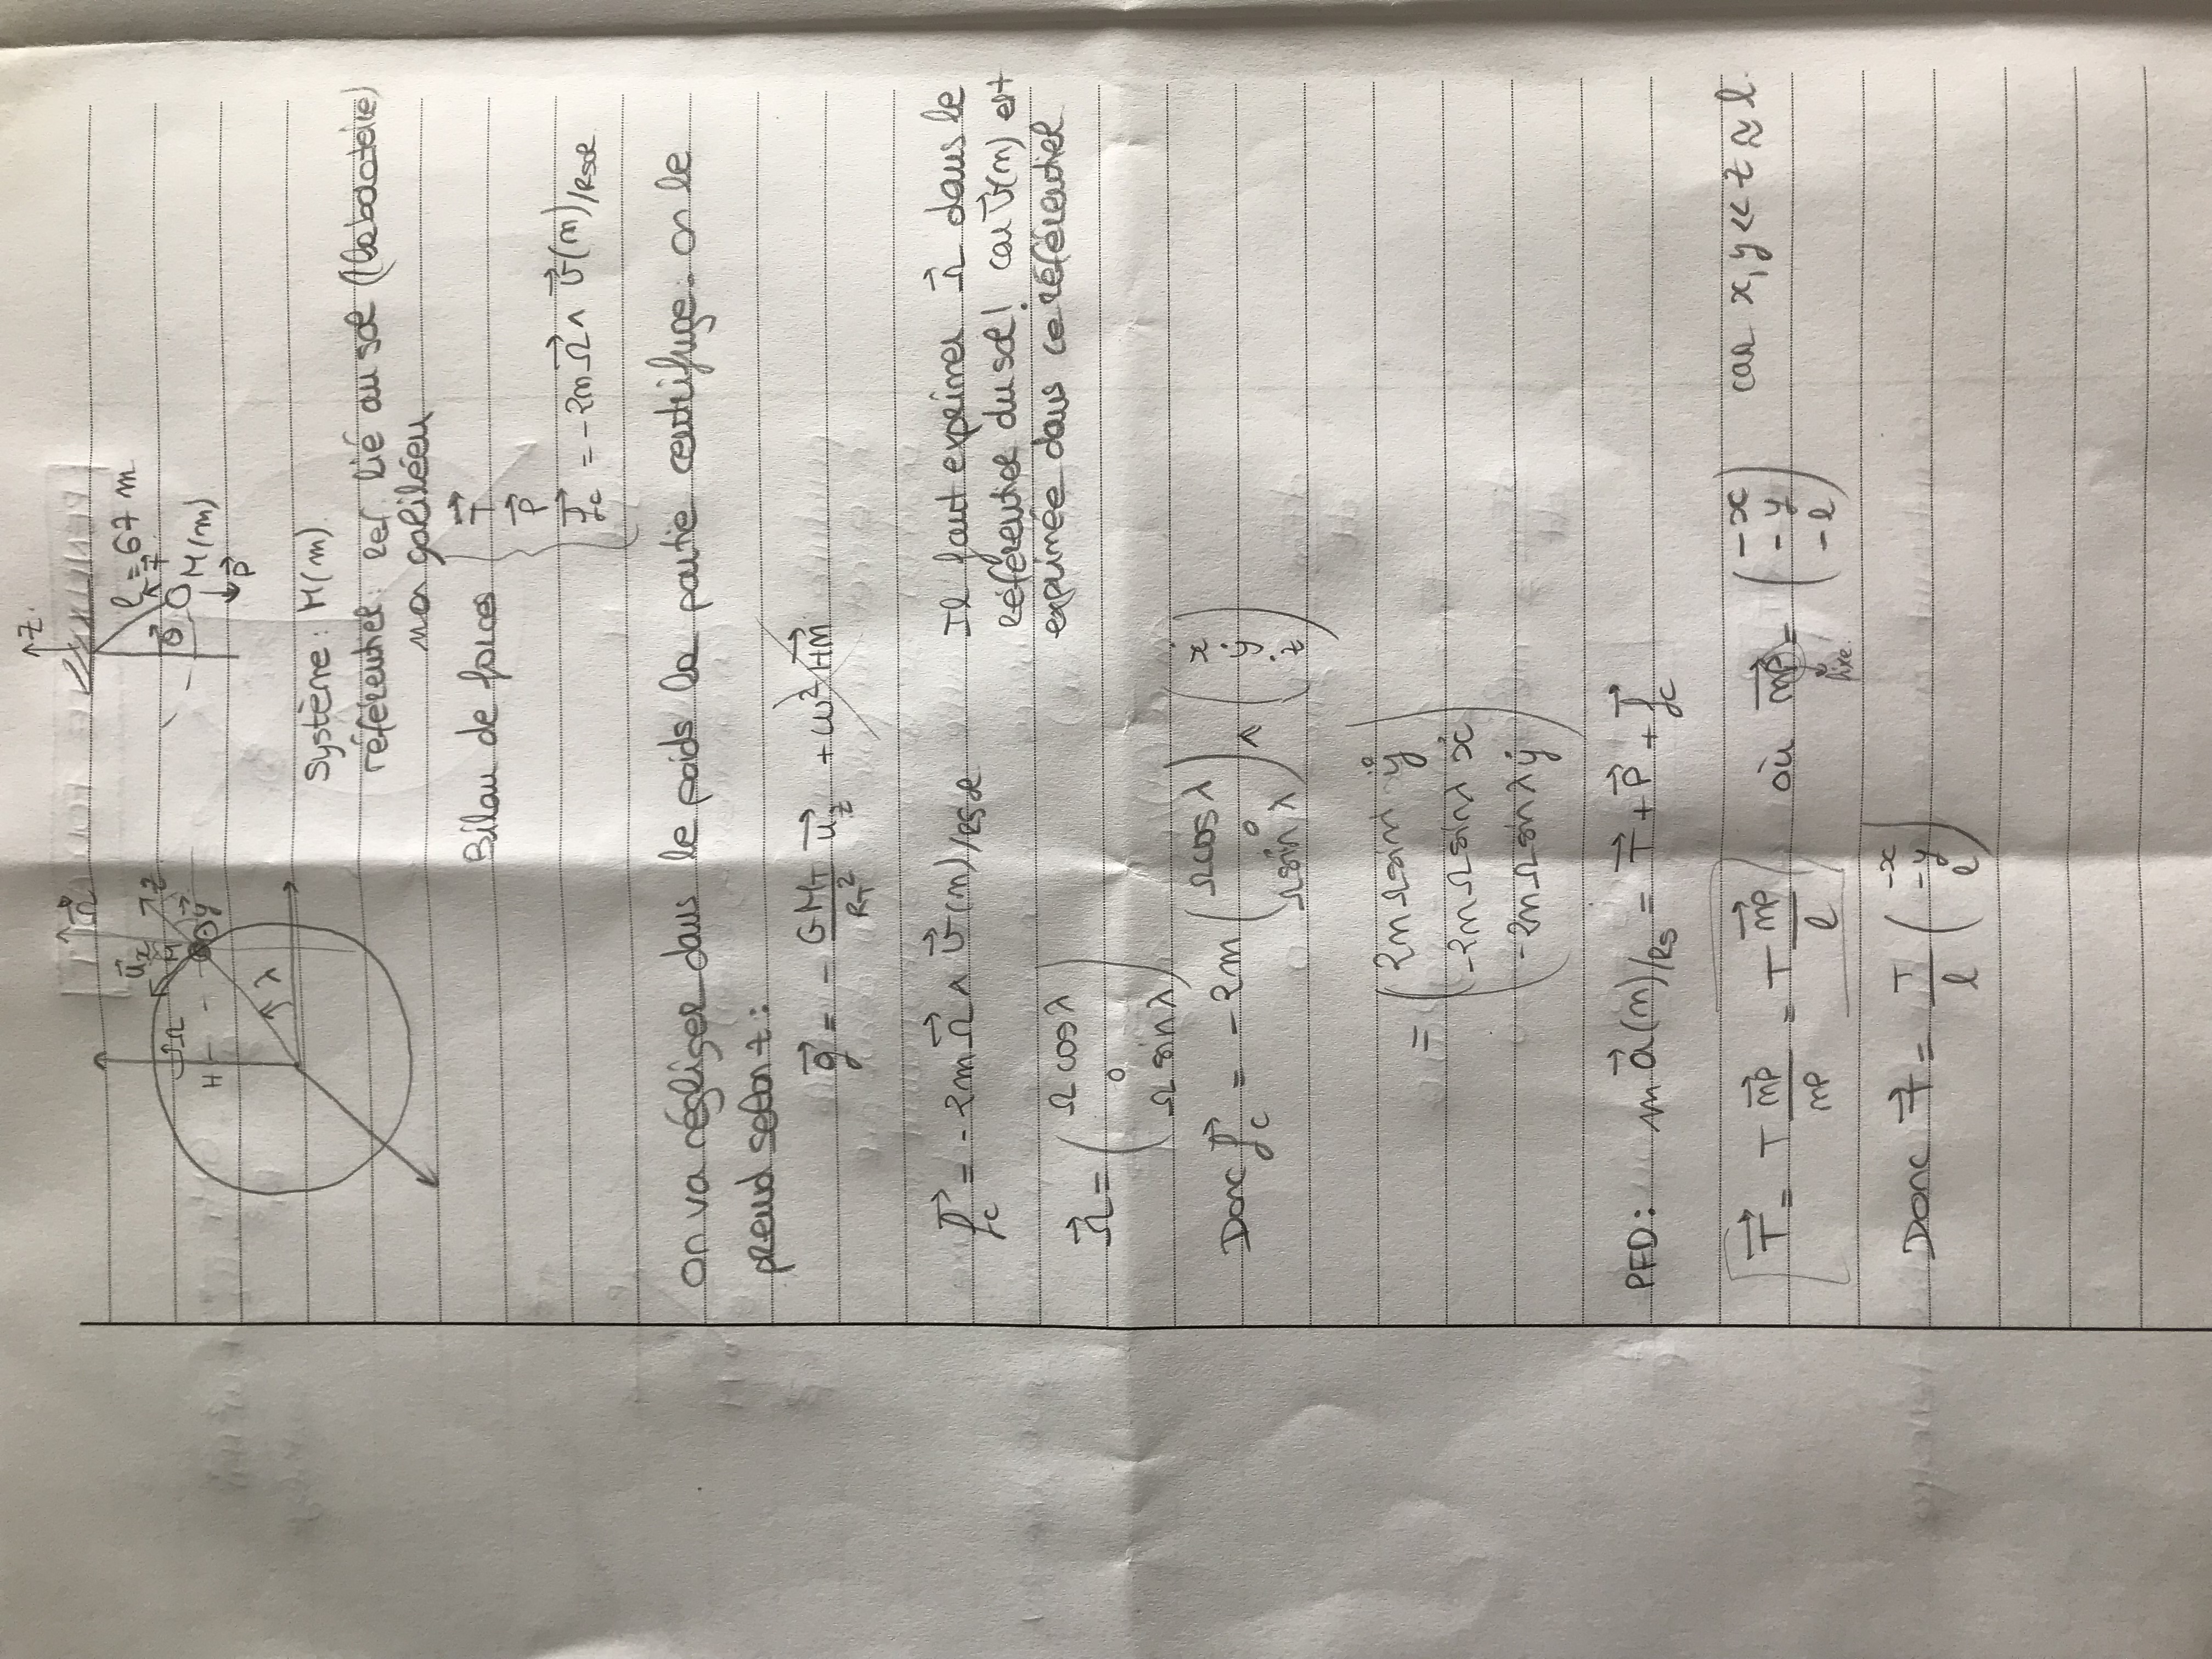 Z
Ω⃗
u⃗x
l = 67 m
Z
M
T⃗
Ω
θ
H
y⃗
M(m)
P⃗
λ
Système : M(m)
référentiel : ref. lié au sol (laboratoire)
non galiléen
Bilan de forces { T⃗
P⃗
f⃗c = -2m Ω⃗ ∧ v⃗(m)/Rsol
On va négliger dans le poids la partie centrifuge. on le
prend selon z :
g⃗ = - GM_T/R_T² u⃗z + ω² HM⃗
f⃗c = -2m Ω⃗ ∧ v⃗(m)/Rsol
Il faut exprimer Ω⃗ dans le
référentiel du sol ! car v⃗(m) est
exprimée dans ce référentiel
Ω⃗ = ( Ω cos λ
0
Ω sin λ )
Donc f⃗c = -2m ( Ω cos λ
0
Ω sin λ ) ∧ ( ẋ
ẏ
ż )
= ( 2m Ω sin λ ẏ
-2m Ω sin λ ẋ
-2m Ω sin λ ẏ )
PFD : m a⃗(m)/Rs = T⃗ + P⃗ + f⃗c
T⃗ = T mp⃗/mp = T mp⃗/l où mp⃗ = ( -x
-y
-l ) car x, y << z ≈ l.
fixe.
Donc T⃗ = T/l ( -x
-y
l )